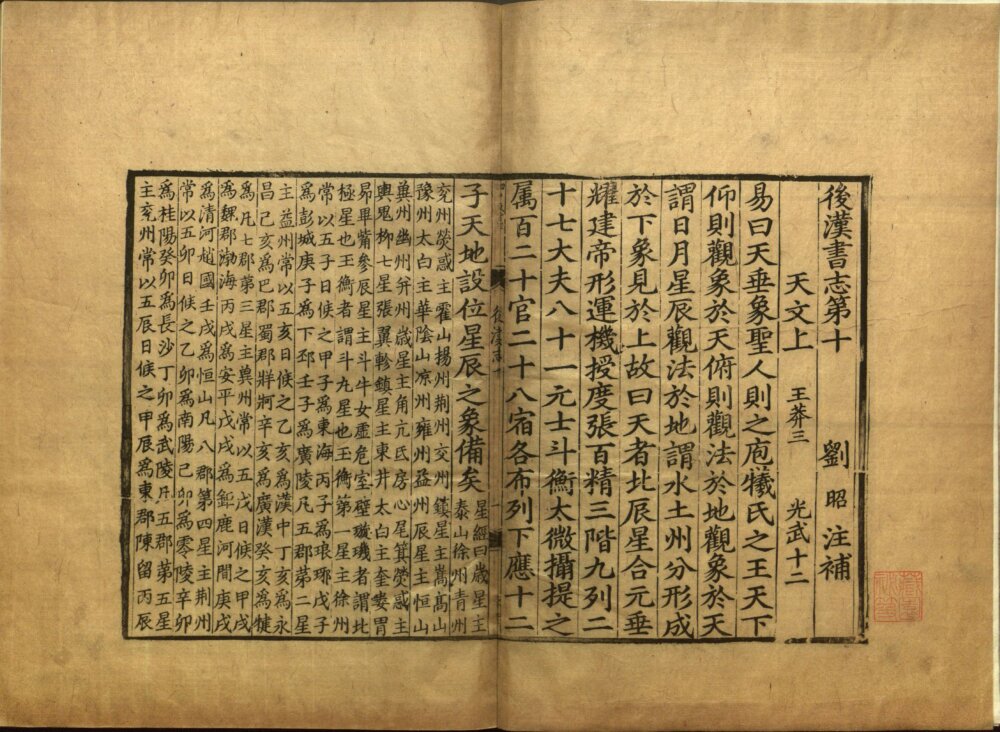 後漢書志第十 劉昭注補
天文上 王莽三 光武十二
易曰天垂象聖人則之庖犧氏之王天下
仰則觀象於天俯則觀法於地觀象於天
謂日月星辰觀法於地謂水土州分形成
於下象見於上故曰天者北辰星合元垂
耀建帝形運機授度張百精三階九列二
十七大夫八十一元士斗衡太微攝提之
属百二十官二十八宿各布列下應十二
後漢志十 一
子天地設位星辰之象備矣 星經曰歲星主
泰山徐州青州
兖州熒惑主霍山揚州荆州交州鎮星主嵩高山
豫州太白主華陰山凉州雍州益州辰星主恒山
兾州幽州并州歲星主角亢氐房心尾箕熒惑主
輿鬼柳七星張翼軫鎮星主東井太白主奎婁胃
昴畢觜參辰星主斗牛女虛危室壁璇璣者謂北
極星也玉衡者謂斗九星也玉衡第一星主徐州
常以五子日候之甲子爲東海丙子爲琅琊戊子
爲彭城庚子爲下邳壬子爲廣陵凡五郡第二星
主益州常以五亥日候之乙亥爲漢中丁亥爲永
昌己亥爲巴郡蜀郡牂牁辛亥爲廣漢癸亥爲犍
爲凡七郡第三星主兾州常以五戌日候之甲戌
爲魏郡渤海丙戌爲安平戊戌爲鉅鹿河間庚戌
爲清河趙國壬戌爲恒山凡八郡第四星主荆州
常以五卯日候之乙卯爲南陽己卯爲零陵辛卯
爲桂陽癸卯爲長沙丁卯爲武陵凡五郡第五星
主兖州常以五辰日候之甲辰爲東郡陳留丙辰